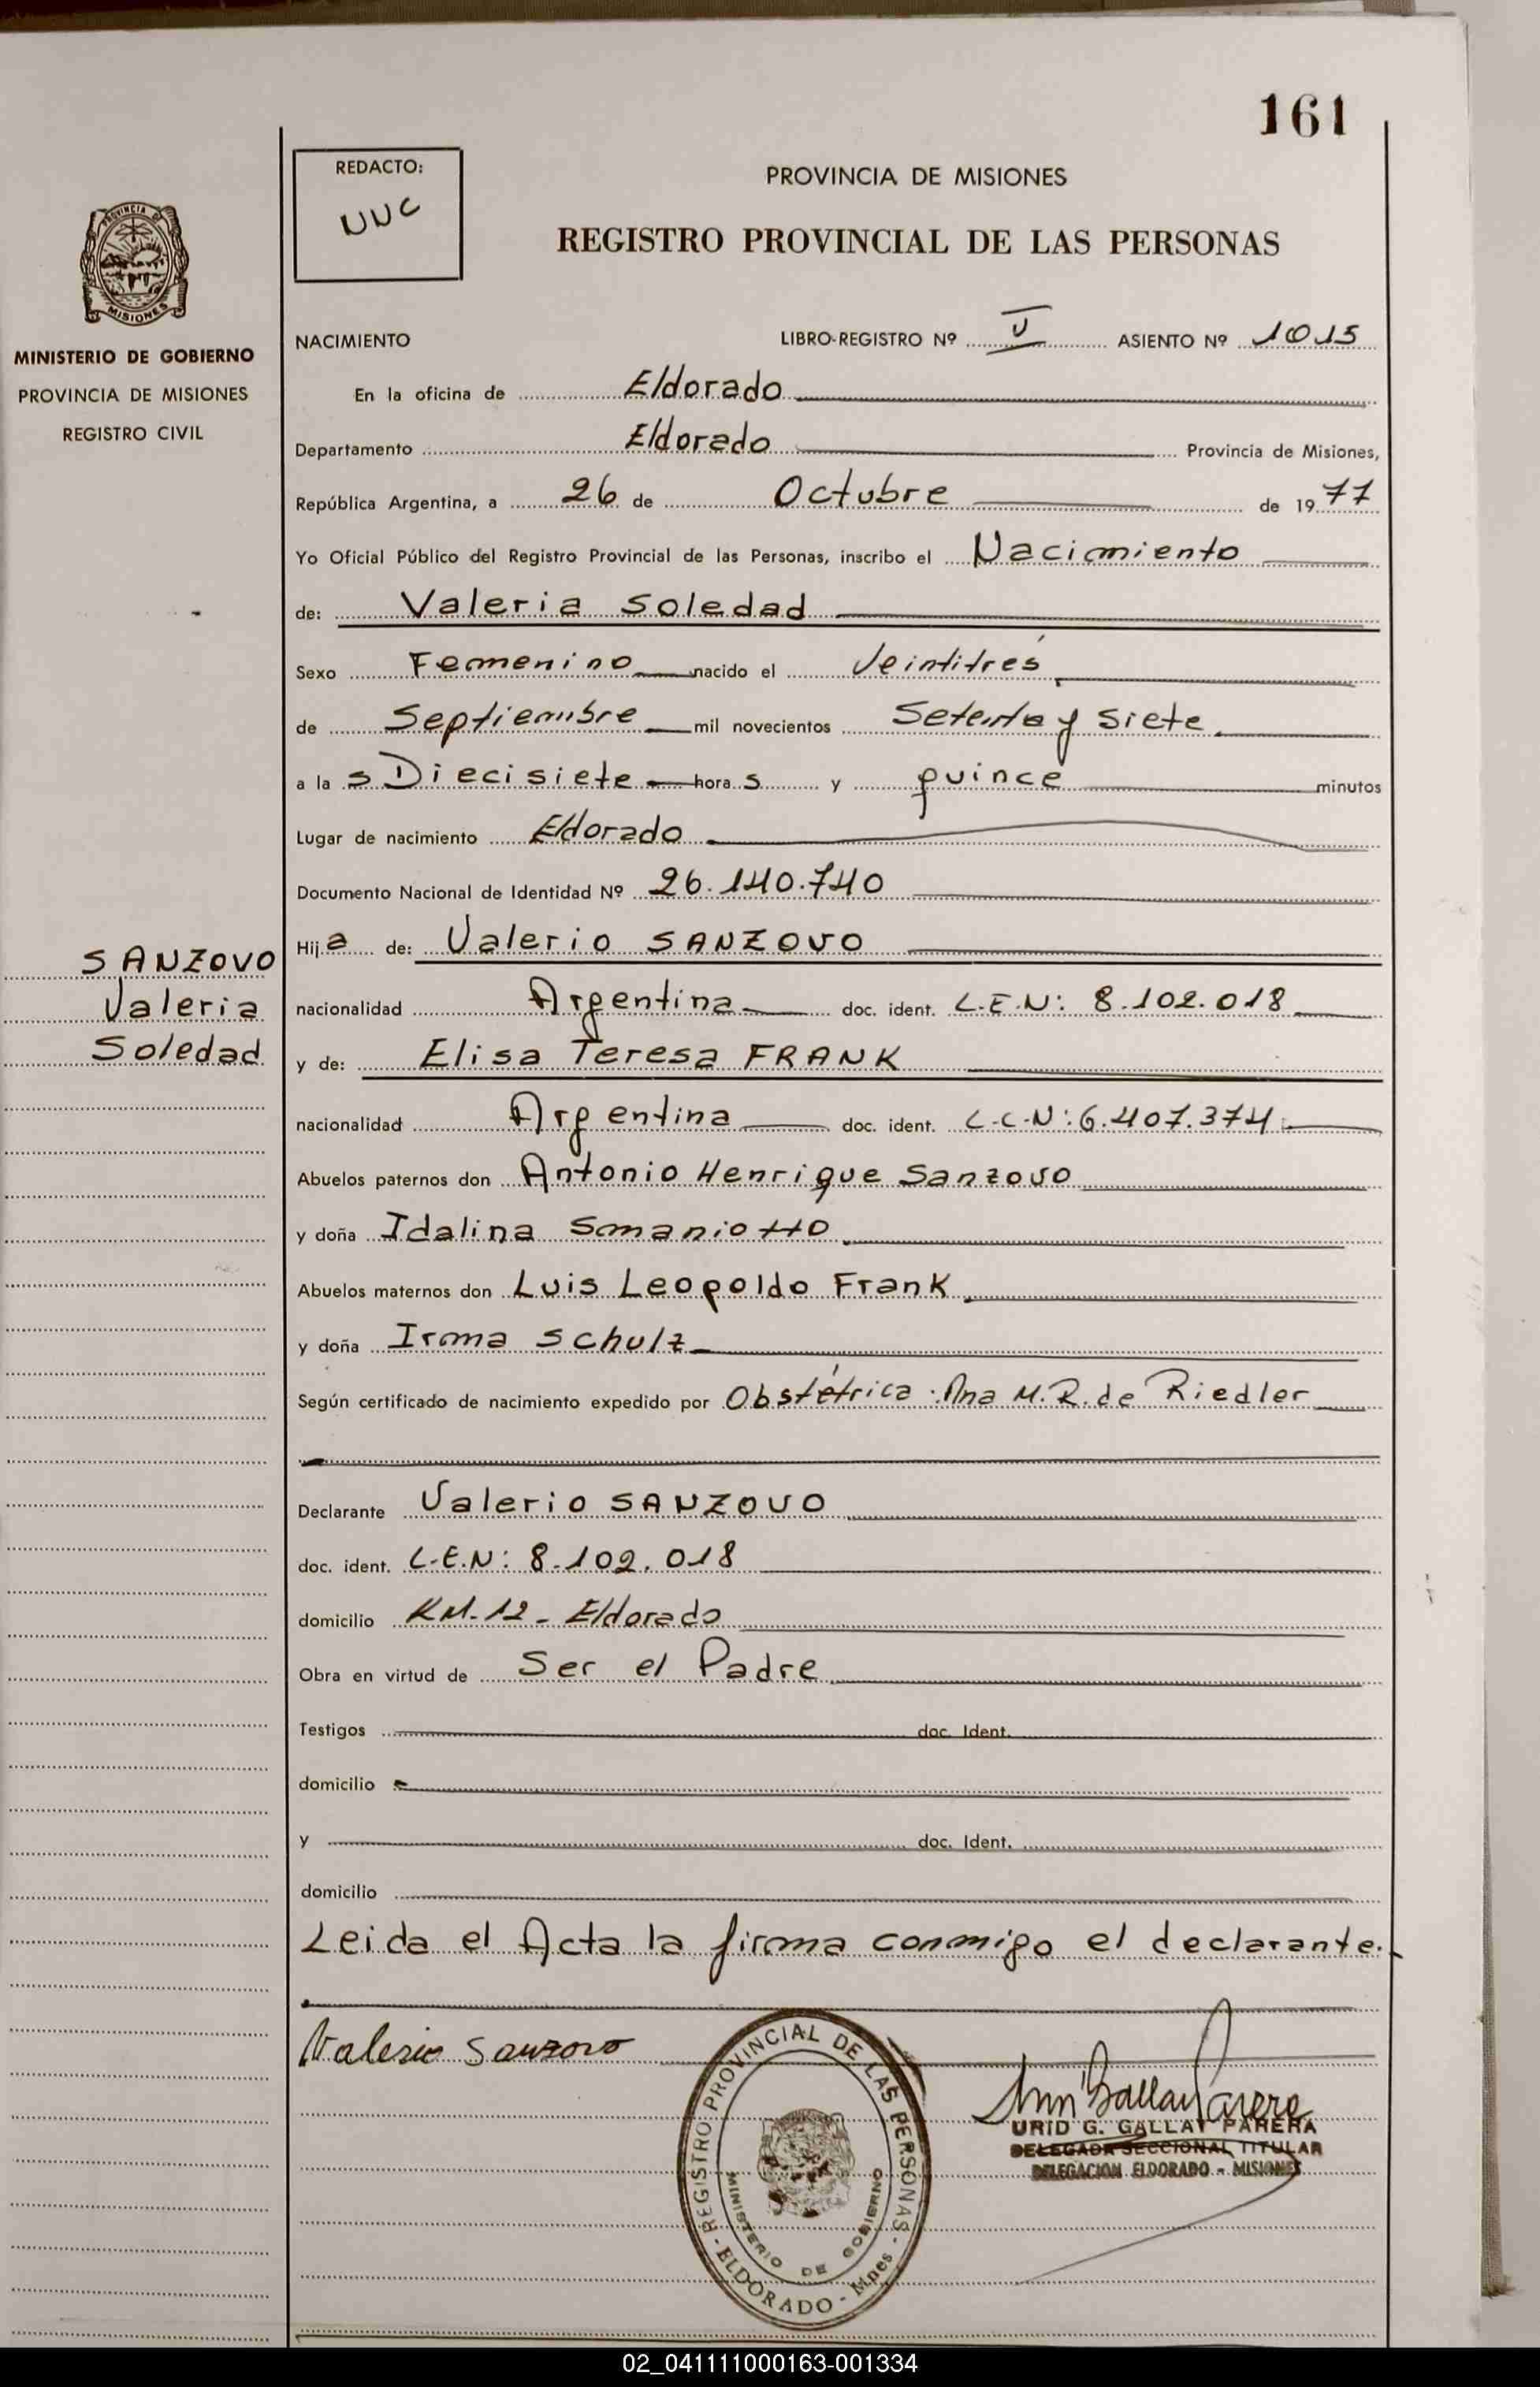 161
REDACTO:
UNC
PROVINCIA DE MISIONES
REGISTRO PROVINCIAL DE LAS PERSONAS
PROVINCIA DE
MISIONES
MINISTERIO DE GOBIERNO
PROVINCIA DE MISIONES
REGISTRO CIVIL
NACIMIENTO LIBRO-REGISTRO Nº V ASIENTO Nº 1015
En la oficina de Eldorado
Departamento Eldorado Provincia de Misiones,
República Argentina, a 26 de Octubre de 1977
Yo Oficial Público del Registro Provincial de las Personas, inscribo el Nacimiento
de: Valeria Soledad
Sexo Femenino nacido el Veintitrés
de Septiembre mil novecientos Setenta y siete
a la s Diecisiete hora s y quince minutos
Lugar de nacimiento Eldorado
Documento Nacional de Identidad Nº 26.140.740
SANZOVO
Valeria
Soledad
Hija de: Valerio SANZOVO
nacionalidad Argentina doc. ident. L.E.N: 8.102.018
y de: Elisa Teresa FRANK
nacionalidad Argentina doc. ident. L.C.N: 6.407.374
Abuelos paternos don Antonio Henrique Sanzovo
y doña Idalina Smaniotto
Abuelos maternos don Luis Leopoldo Frank
y doña Irma Schulz
Según certificado de nacimiento expedido por Obstétrica: Ana M.R. de Riedler
Declarante Valerio SANZOVO
doc. ident. L.E.N: 8.102.018
domicilio KM-12 - Eldorado
Obra en virtud de Ser el Padre
Testigos doc. Ident.
domicilio
y doc. Ident.
domicilio
Leida el Acta la firma conmigo el declarante.
Valerio Sanzovo
REGISTRO PROVINCIAL DE LAS PERSONAS - ELDORADO - Mnes -
MINISTERIO DE GOBIERNO
URID G. GALLAY PARERA
DELEGADA SECCIONAL TITULAR
DELEGACION ELDORADO - MISIONES
02_041111000163-001334